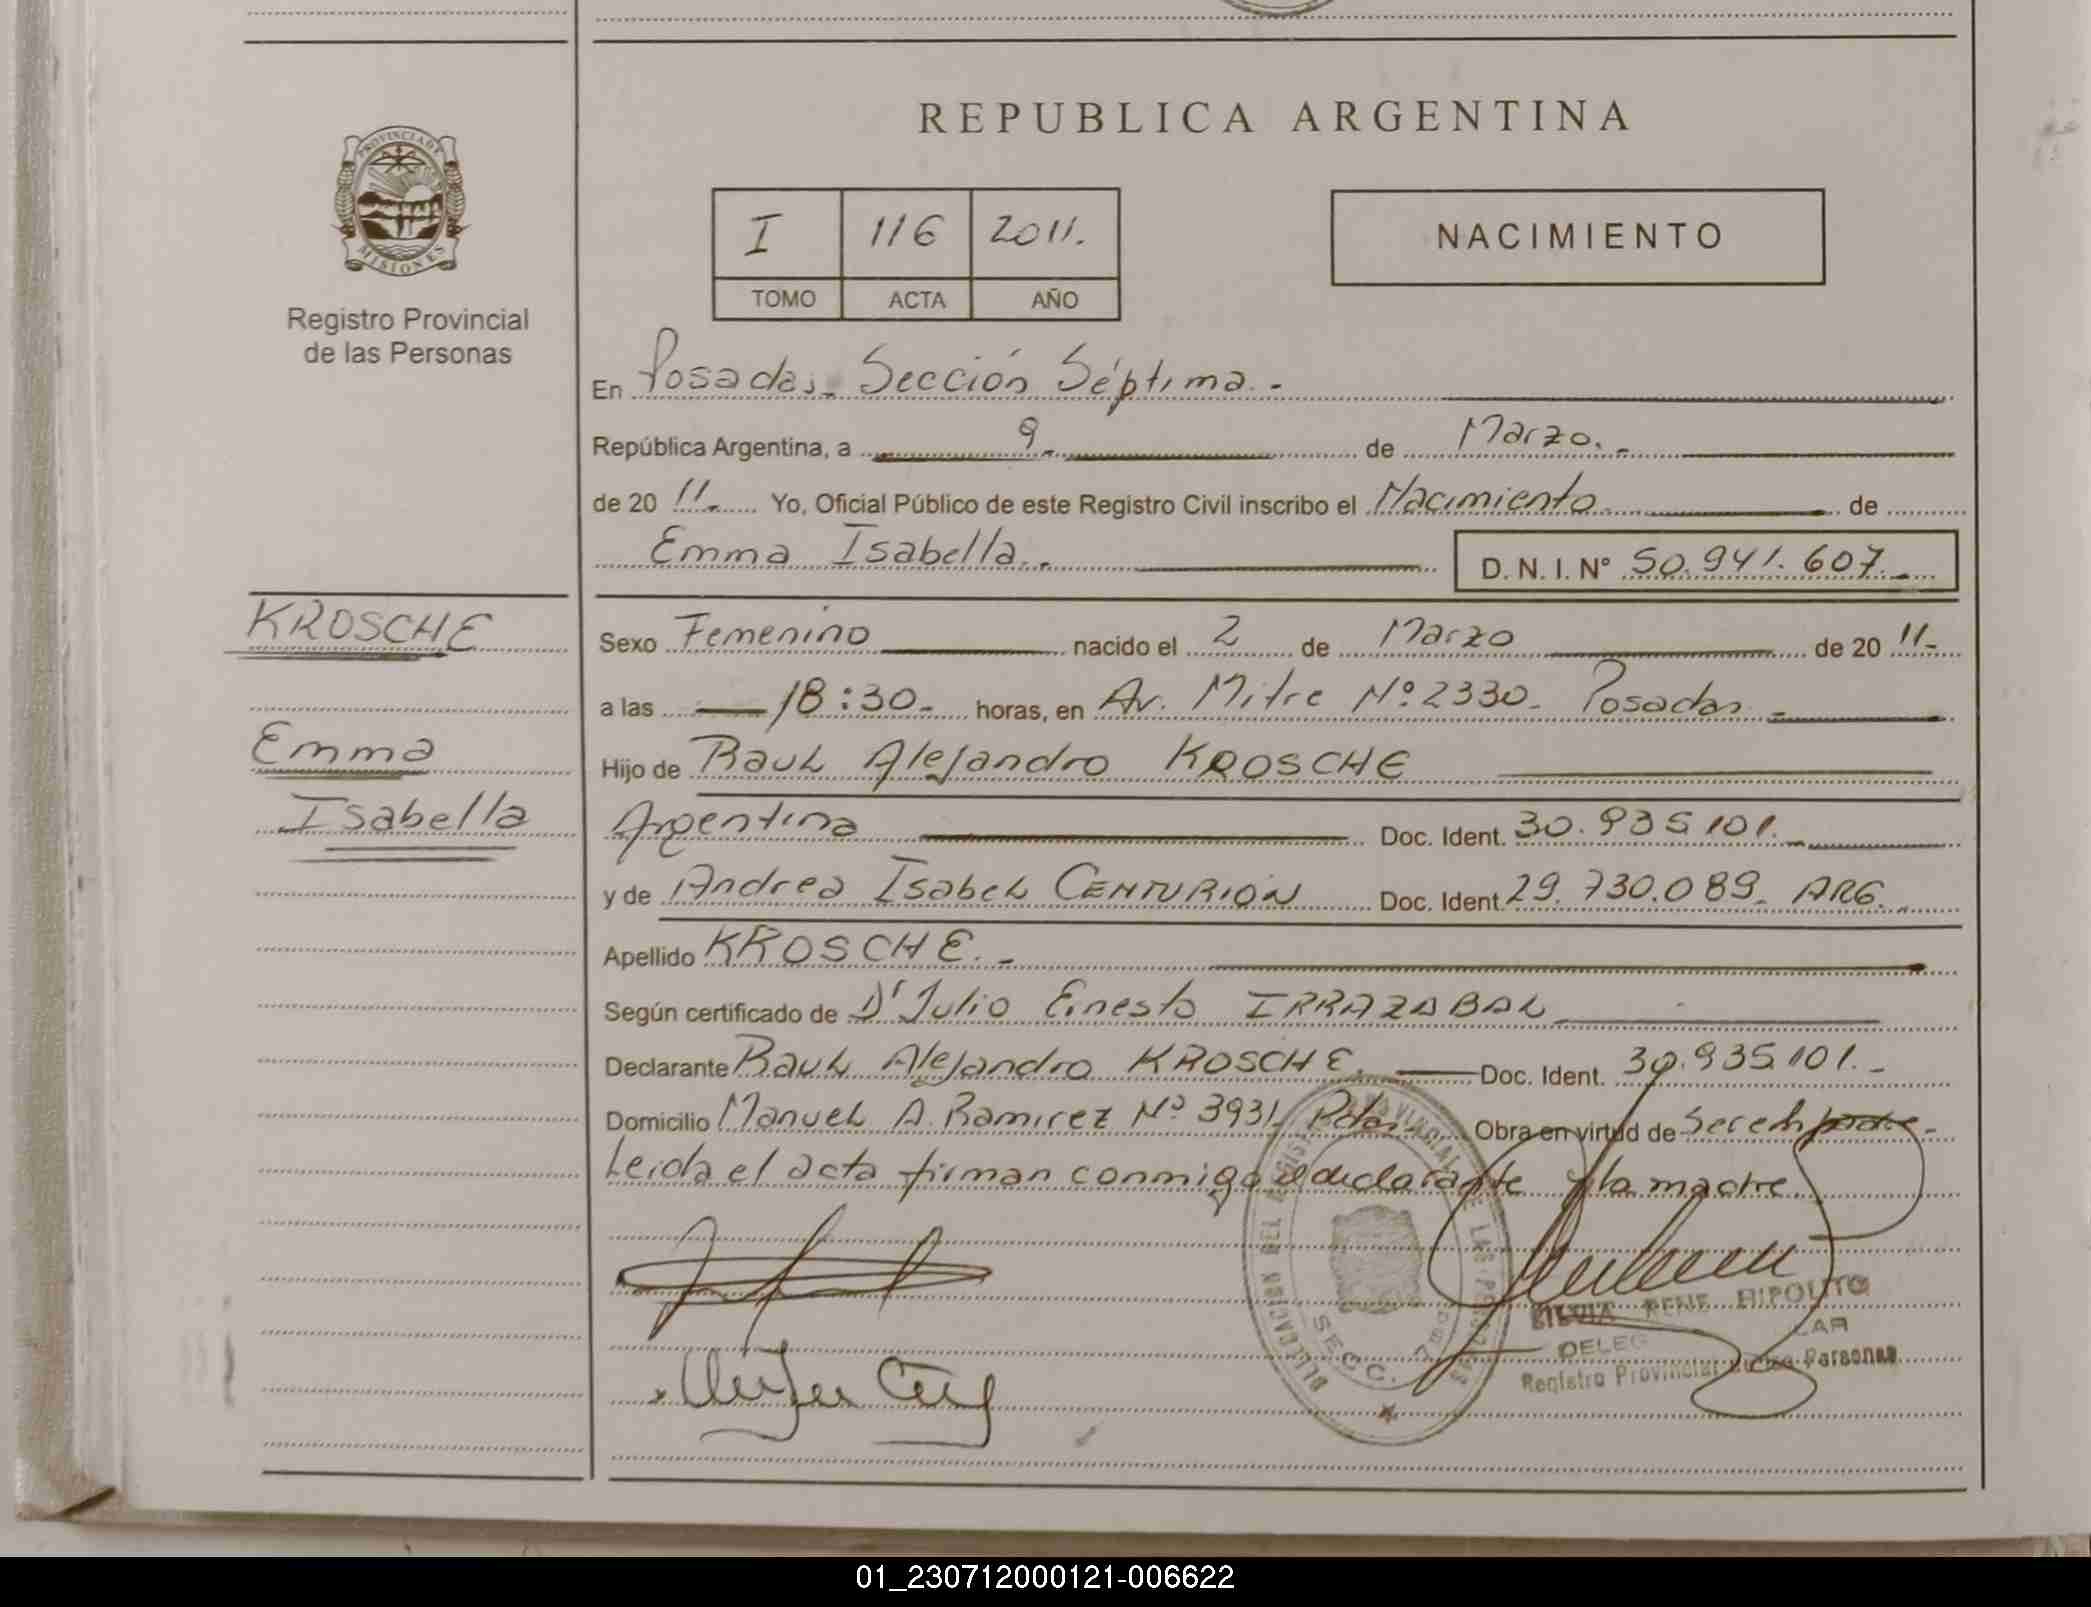 REPUBLICA ARGENTINA
PROVINCIA DE
MISIONES
Registro Provincial
de las Personas
I 116 2011.
TOMO ACTA AÑO
NACIMIENTO
En Posadas. Sección Séptima.-
República Argentina, a 9.- de Marzo.-
de 20 11.- Yo, Oficial Público de este Registro Civil inscribo el Nacimiento de
Emma Isabella.- D. N. I. N° 50.941.607.-
KROSCHE
Emma
Isabella
Sexo Femenino nacido el 2 de Marzo de 20 11-
a las 18:30- horas, en Av. Mitre Nº 2330- Posadas.-
Hijo de RauL Alejandro KROSCHE
Argentina Doc. Ident. 30.935.101.-
y de Andrea IsabeL CENTURION Doc. Ident. 29.730.089- ARG.-
Apellido KROSCHE.-
Según certificado de Dr Julio Ernesto IRRAZABAL
Declarante RauL Alejandro KROSCHE. Doc. Ident. 30.935.101.-
Domicilio ManueL A. Ramirez Nº 3931- Pdas. Obra en virtud de Ser el padre.-
Leida el acta firman conmigo el declarante y la madre.
SECC.
HIPOLITO
DELEG
Registro Provincial de las Personas
01_230712000121-006622